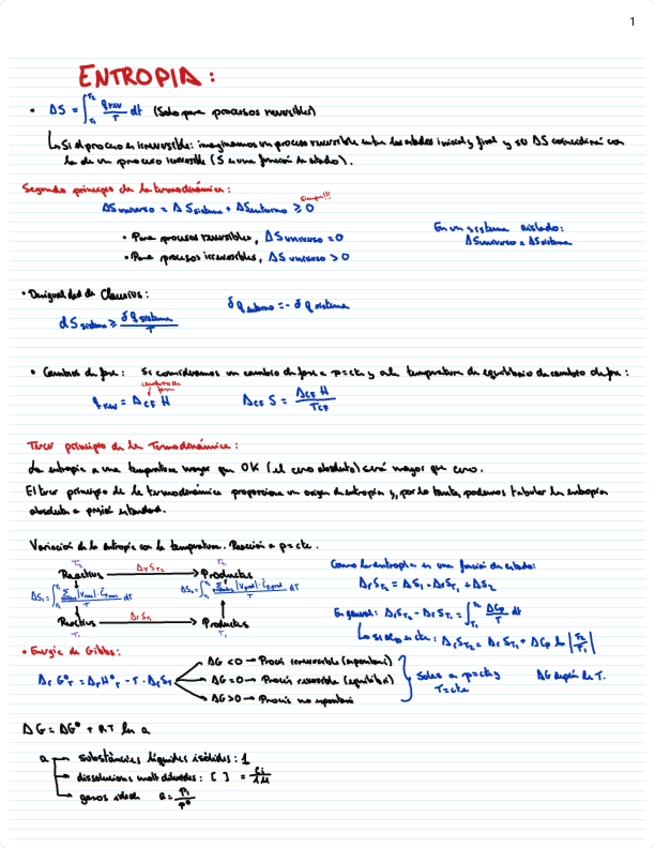 1
ENTROPIA:
• ΔS = ∫_{T₁}^{T₂} q_rev/T dt (Solo para procesos reversibles)
↳ Si el proceso es irreversible: imaginamos un proceso reversible entre los estados inicial y final y su ΔS coincidirá con
la de un proceso irreversible (S es una función de estado).
Segundo principio de la termodinámica:
ΔSuniverso = ΔSsistema + ΔSentorno ≥ 0 siempre!!!
• Para procesos reversibles, ΔSuniverso = 0
• Para procesos irreversibles, ΔSuniverso > 0
En un sistema aislado:
ΔSuniverso = ΔSsistema
• Desigualdad de Clausius:
δq entorno = - δq sistema
dSsistema ≥ δq sistema/T
• Cambios de fase: Si consideramos un cambio de fase a p=cte y a la temperatura de equilibrio de cambio de fase:
cambio de fase
q rev = Δ_CF H
Δ_CF S = Δ_CF H / T_CF
Tercer principio de la Termodinámica:
La entropía a una temperatura mayor que 0K (el cero absoluto) será mayor que cero.
El tercer principio de la termodinámica proporciona un origen de entropía y, por lo tanto, podemos tabular la entropía
absoluta a presión estándar.
Variación de la entropía con la temperatura. Reacción a p=cte.
T₂ T₂
Reactius ΔrS_T₂ → Productes
ΔS₁ = ∫ dT
ΔS₂ = ∫ dT
Reactius ΔrS_T₁ → Productes
T₁ T₁
Como la entropía es una función de estado:
ΔrS_T₂ = ΔS₁ + ΔrS_T₁ + ΔS₂
En general: ΔrS_T₂ - ΔrS_T₁ = ∫_{T₁}^{T₂} ΔCp/T dt
↳ si ΔCp es cte: ΔrS_T₂ = ΔrS_T₁ + ΔCp ln |T₂/T₁|
• Energia de Gibbs:
ΔrG°_T = ΔrH°_T - T · ΔrS_T
ΔG < 0 → Procés irreversible (espontani)
ΔG = 0 → Procés reversible (equilibri)
ΔG > 0 → Procés no espontani
Soles a p=cte y
T=cte
ΔG depèn de T.
ΔG = ΔG° + RT ln a
a → substàncies líquides isòlides: 1
→ dissolucions molt diluïdes: [ ] = ci/1M
→ gasos ideals a = Pi/P°